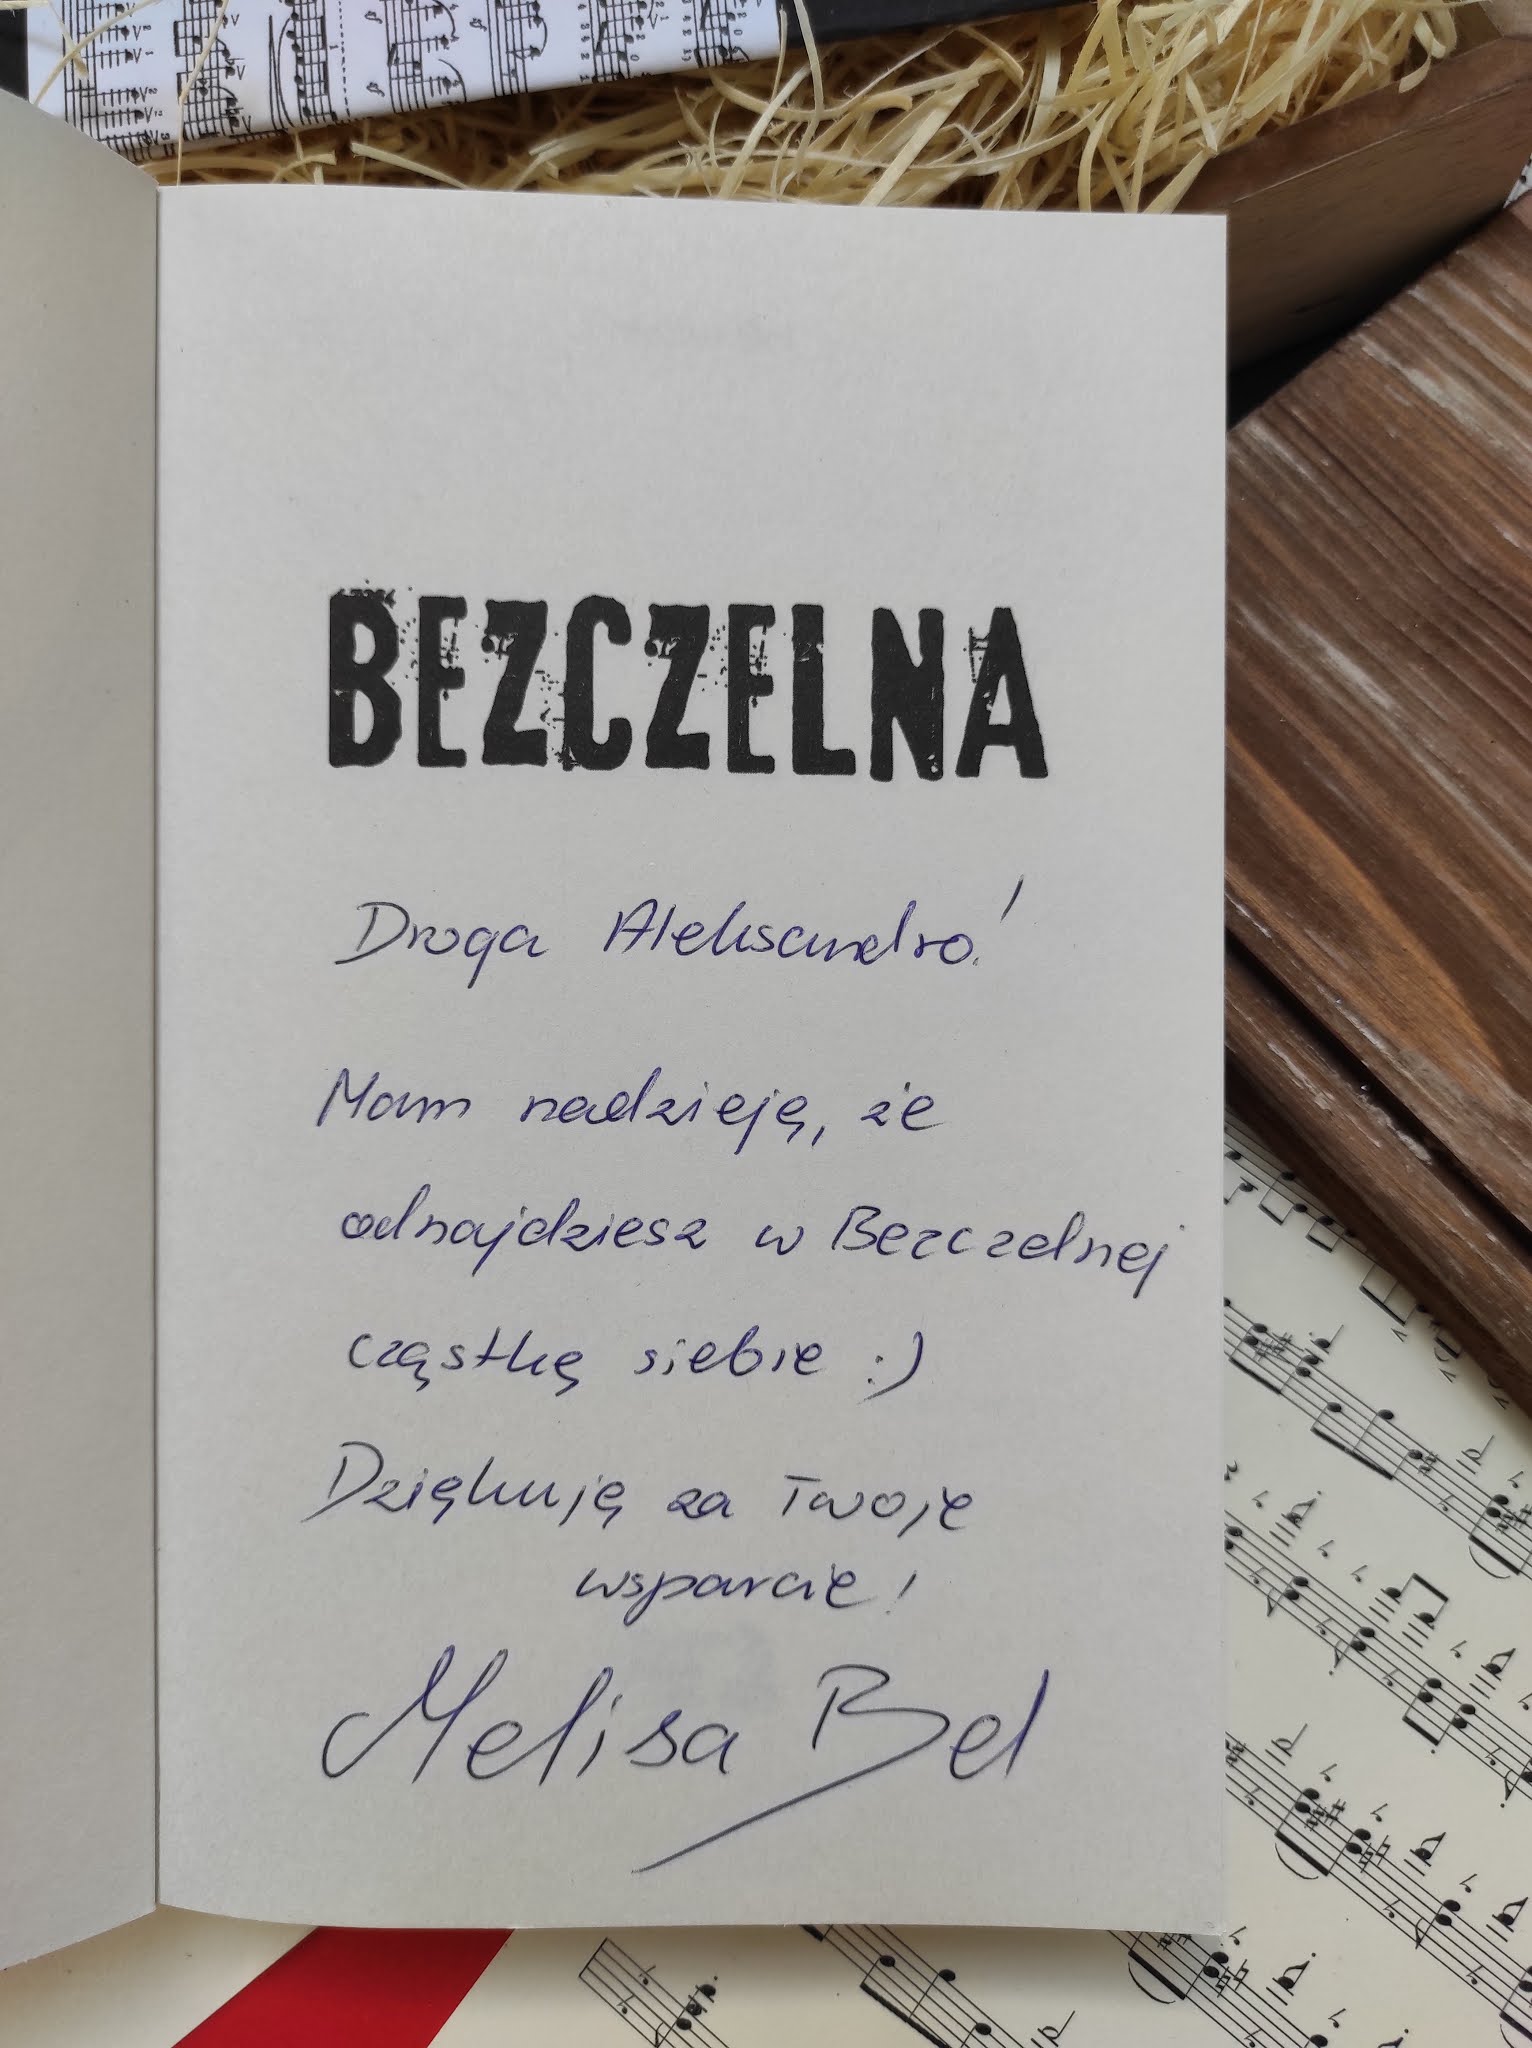 BEZCZELNA
Droga Aleksandro!
Mam nadzieję, że
odnajdziesz w Bezczelnej
cząstkę siebie :)
Dziękuję za Twoje
wsparcie!
Melisa Bel